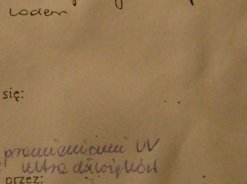 lodem
się:
promieniami UV
ultradźwięków
przez: